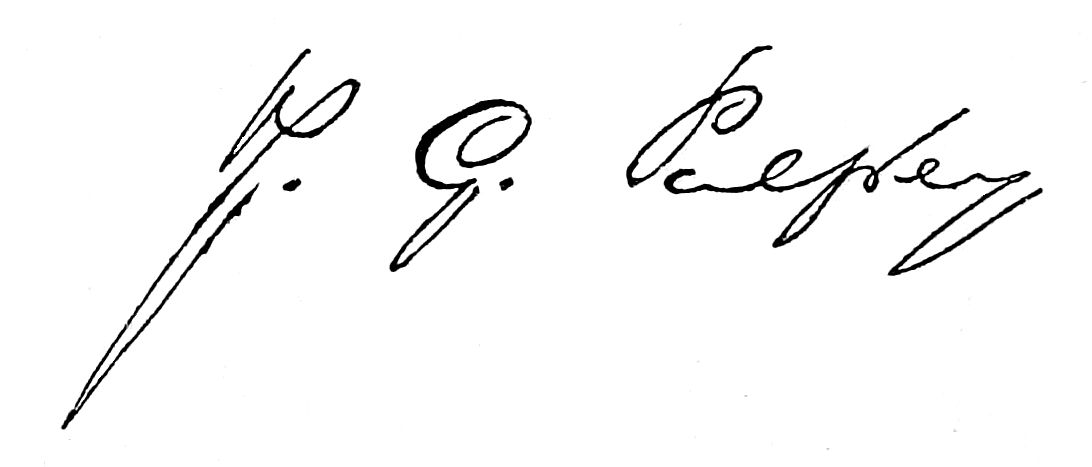 J. G. Palfrey